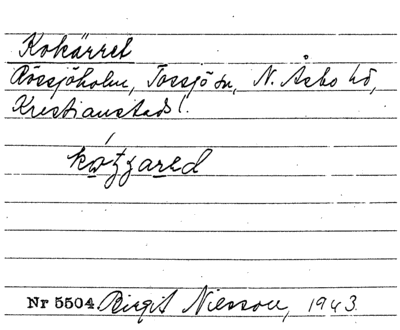 Kokärret
Rössjöholm, Tossjö sn, N. Åsbo hd,
Kristianstads l.
kózzared
Nr 5504. Birgit Nilsson, 1943.